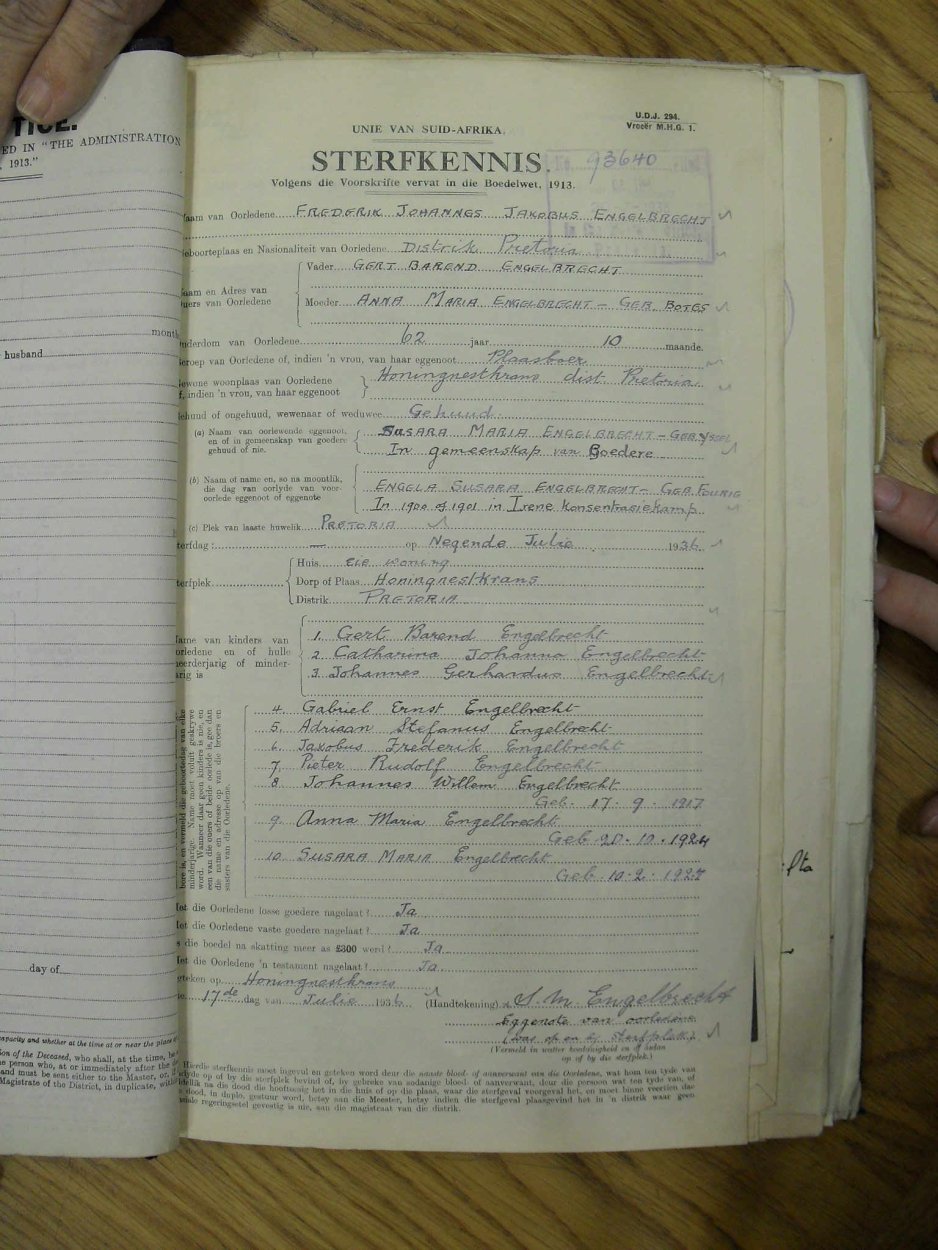 TICE.
ED IN "THE ADMINISTRATION
, 1913."
month
husband
day of
capacity and whether at the time at or near the place of
ion of the Deceased, who shall, at the time, be
e person who, at or immediately after the
and must be sent either to the Master, or, if
Magistrate of the District, in duplicate, with
U.D.J. 294.
Vroeër M.H.G. 1.
UNIE VAN SUID-AFRIKA.
STERFKENNIS.
93640
Volgens die Voorskrifte vervat in die Boedelwet, 1913.
Naam van Oorledene FREDERIK JOHANNES JAKOBUS ENGELBRECHT
Geboorteplaas en Nasionaliteit van Oorledene Distrik Pretoria
Vader GERT BAREND ENGELBRECHT
Naam en Adres van
Ouers van Oorledene
Moeder ANNA MARIA ENGELBRECHT – GEB. BOTES
Ouderdom van Oorledene 62 jaar 10 maande.
Beroep van Oorledene of, indien 'n vrou, van haar eggenoot Plaasboer
Gewone woonplaas van Oorledene
of, indien 'n vrou, van haar eggenoot
Honingnestkrans dist. Pretoria
Gehuud of ongehuud, wewenaar of weduwee Gehuud
(a) Naam van oorlewende eggenoot,
en of in gemeenskap van goedere
gehuud of nie.
SUSARA MARIA ENGELBRECHT – GEB. YSSEL
In gemeenskap van Goedere
(b) Naam of name en, so na moontlik,
die dag van oorlyde van voor-
oorlede eggenoot of eggenote
ENGELA SUSARA ENGELBRECHT – GEB. FOURIE
In 1900 of 1901 in Irene Konsentrasiekamp
(c) Plek van laaste huwelik PRETORIA
Sterfdag : — op Negende Julie 1936
Sterfplek
Huis eie woning
Dorp of Plaas Honingnestkrans
Distrik PRETORIA
Name van kinders van
Oorledene en of hulle
meerderjarig of minder-
jarig is
1. Gert Barend Engelbrecht
2. Catharina Johanna Engelbrecht
3. Johannes Gerhardus Engelbrecht
4. Gabriel Ernst Engelbrecht
5. Adriaan Stefanus Engelbrecht
6. Jakobus Frederik Engelbrecht
7. Pieter Rudolf Engelbrecht
8. Johannes Willem Engelbrecht
Geb. 17. 9. 1917
9. Anna Maria Engelbrecht
Geb. 20. 10. 1924
10. SUSARA MARIA Engelbrecht
Geb. 10. 2. 1927
en vermeld die geboortedag van elke
minderjarige. Name moet voluit geskrywe
word. Wanneer daar geen kinders is nie, en
een van die ouers of beide oorlede is, gee dan
die name en adresse op van die broers en
susters van die Oorledene.
Het die Oorledene losse goedere nagelaat ? Ja
Het die Oorledene vaste goedere nagelaat ? Ja
Is die boedel na skatting meer as £300 werd ? Ja
Het die Oorledene 'n testament nagelaat ? Ja
Geteken op Honingnestkrans
17de dag van Julie 1936 (Handtekening) S. M. Engelbrecht
Eggenote van oorledene
(was op en by sterfplek)
(Vermeld in watter hoedanigheid en of dadan
op of by die sterfplek.)
Hierdie sterfkennis moet ingevul en geteken word deur die naaste bloed- of aanverwant van die Oorledene, wat hom ten tyde van
oorlyde op of by die sterfplek bevind of, by gebreke van sodanige bloed- of aanverwant, deur die persoon wat ten tyde van, of
dadelik na die dood die hooftoesig het in die huis of op die plaas, waar die sterfgeval voorgeval het, en moet binne veertien dae
dood, in duplo, gestuur word, hetsy aan die Meester, hetsy indien die sterfgeval plaasgevind het in 'n distrik waar geen
regeringsetel gevestig is nie, aan die magistraat van die distrik.